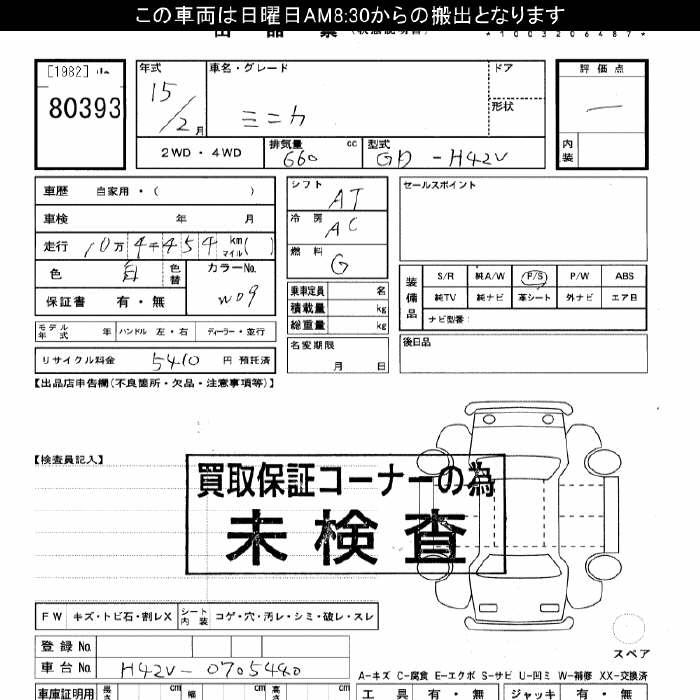 この車両は日曜日AM8:30からの搬出となります
出品票
*1003206487*
[1982]
80393
年式 車名・グレード ドア 評価点
15/2月 ミニカ 形状 —
2WD・4WD 排気量 660 cc 型式 GD-H42V 内装
車歴 自家用・( ) シフト AT セールスポイント
車検 年 月 冷房 AC
走行 10万4千454km マイル( ) 燃料 G
色 白 色替 カラーNo. W09
保証書 有・無
乗車定員 名
積載量 kg
総重量 kg
装備品 S/R 純A/W P/S P/W ABS
純TV 純ナビ 革シート 外ナビ エア日
ナビ型番:
モデル年式 年 ハンドル 左・右 ディーラー・並行
名変期限 月 日
後日品
リサイクル料金 5410 円 預託済
【出品店申告欄(不良箇所・欠品・注意事項等)】
【検査員記入】
買取保証コーナーの為
未検査
FW キズ・トビ石・割レX シート内装 コゲ・穴・汚レ・シミ・破レ・スレ
スペア
登録No.
車台No. H42V-0705440
A-キズ C-腐食 E-エクボ S-サビ U-凹ミ W-補修 XX-交換済
車庫証明用 長さ cm 幅 cm 高さ cm 工具 有・無 ジャッキ 有・無